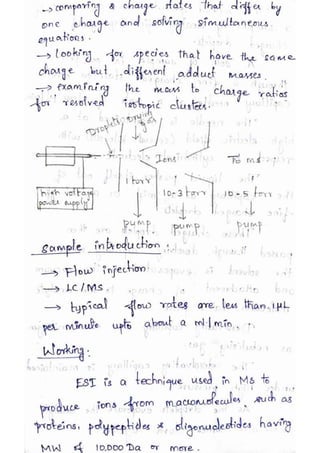 → comparing & charge states that differ by
one charge and solving simultaneous
equations.
→ looking for species that have the same
charge but different adduct masses.
→ examining the mass to charge ratios
for resolved isotopic clusters.
Droplets drying gas
Ions To ms
1 torr 10-3 torr 10-5 torr
high voltage
power supply
pump pump pump
Sample introduction
→ Flow injection
→ LC/MS
→ typical flow rates are less than 1µL
per minute upto about a ml/min.
Working:
ESI is a technique used in MS to
produce ions from macromolecules such as
proteins, polypeptides & oligonucleotides having
MW of 10,000 Da or more.